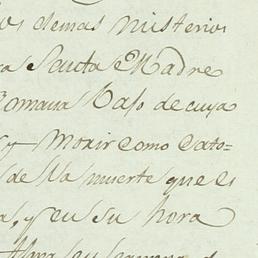 os demas misterios
a Santa Madre
Romana baso de cuya
y Morir como Cato=
de Na muerte que es
a, y en su hora